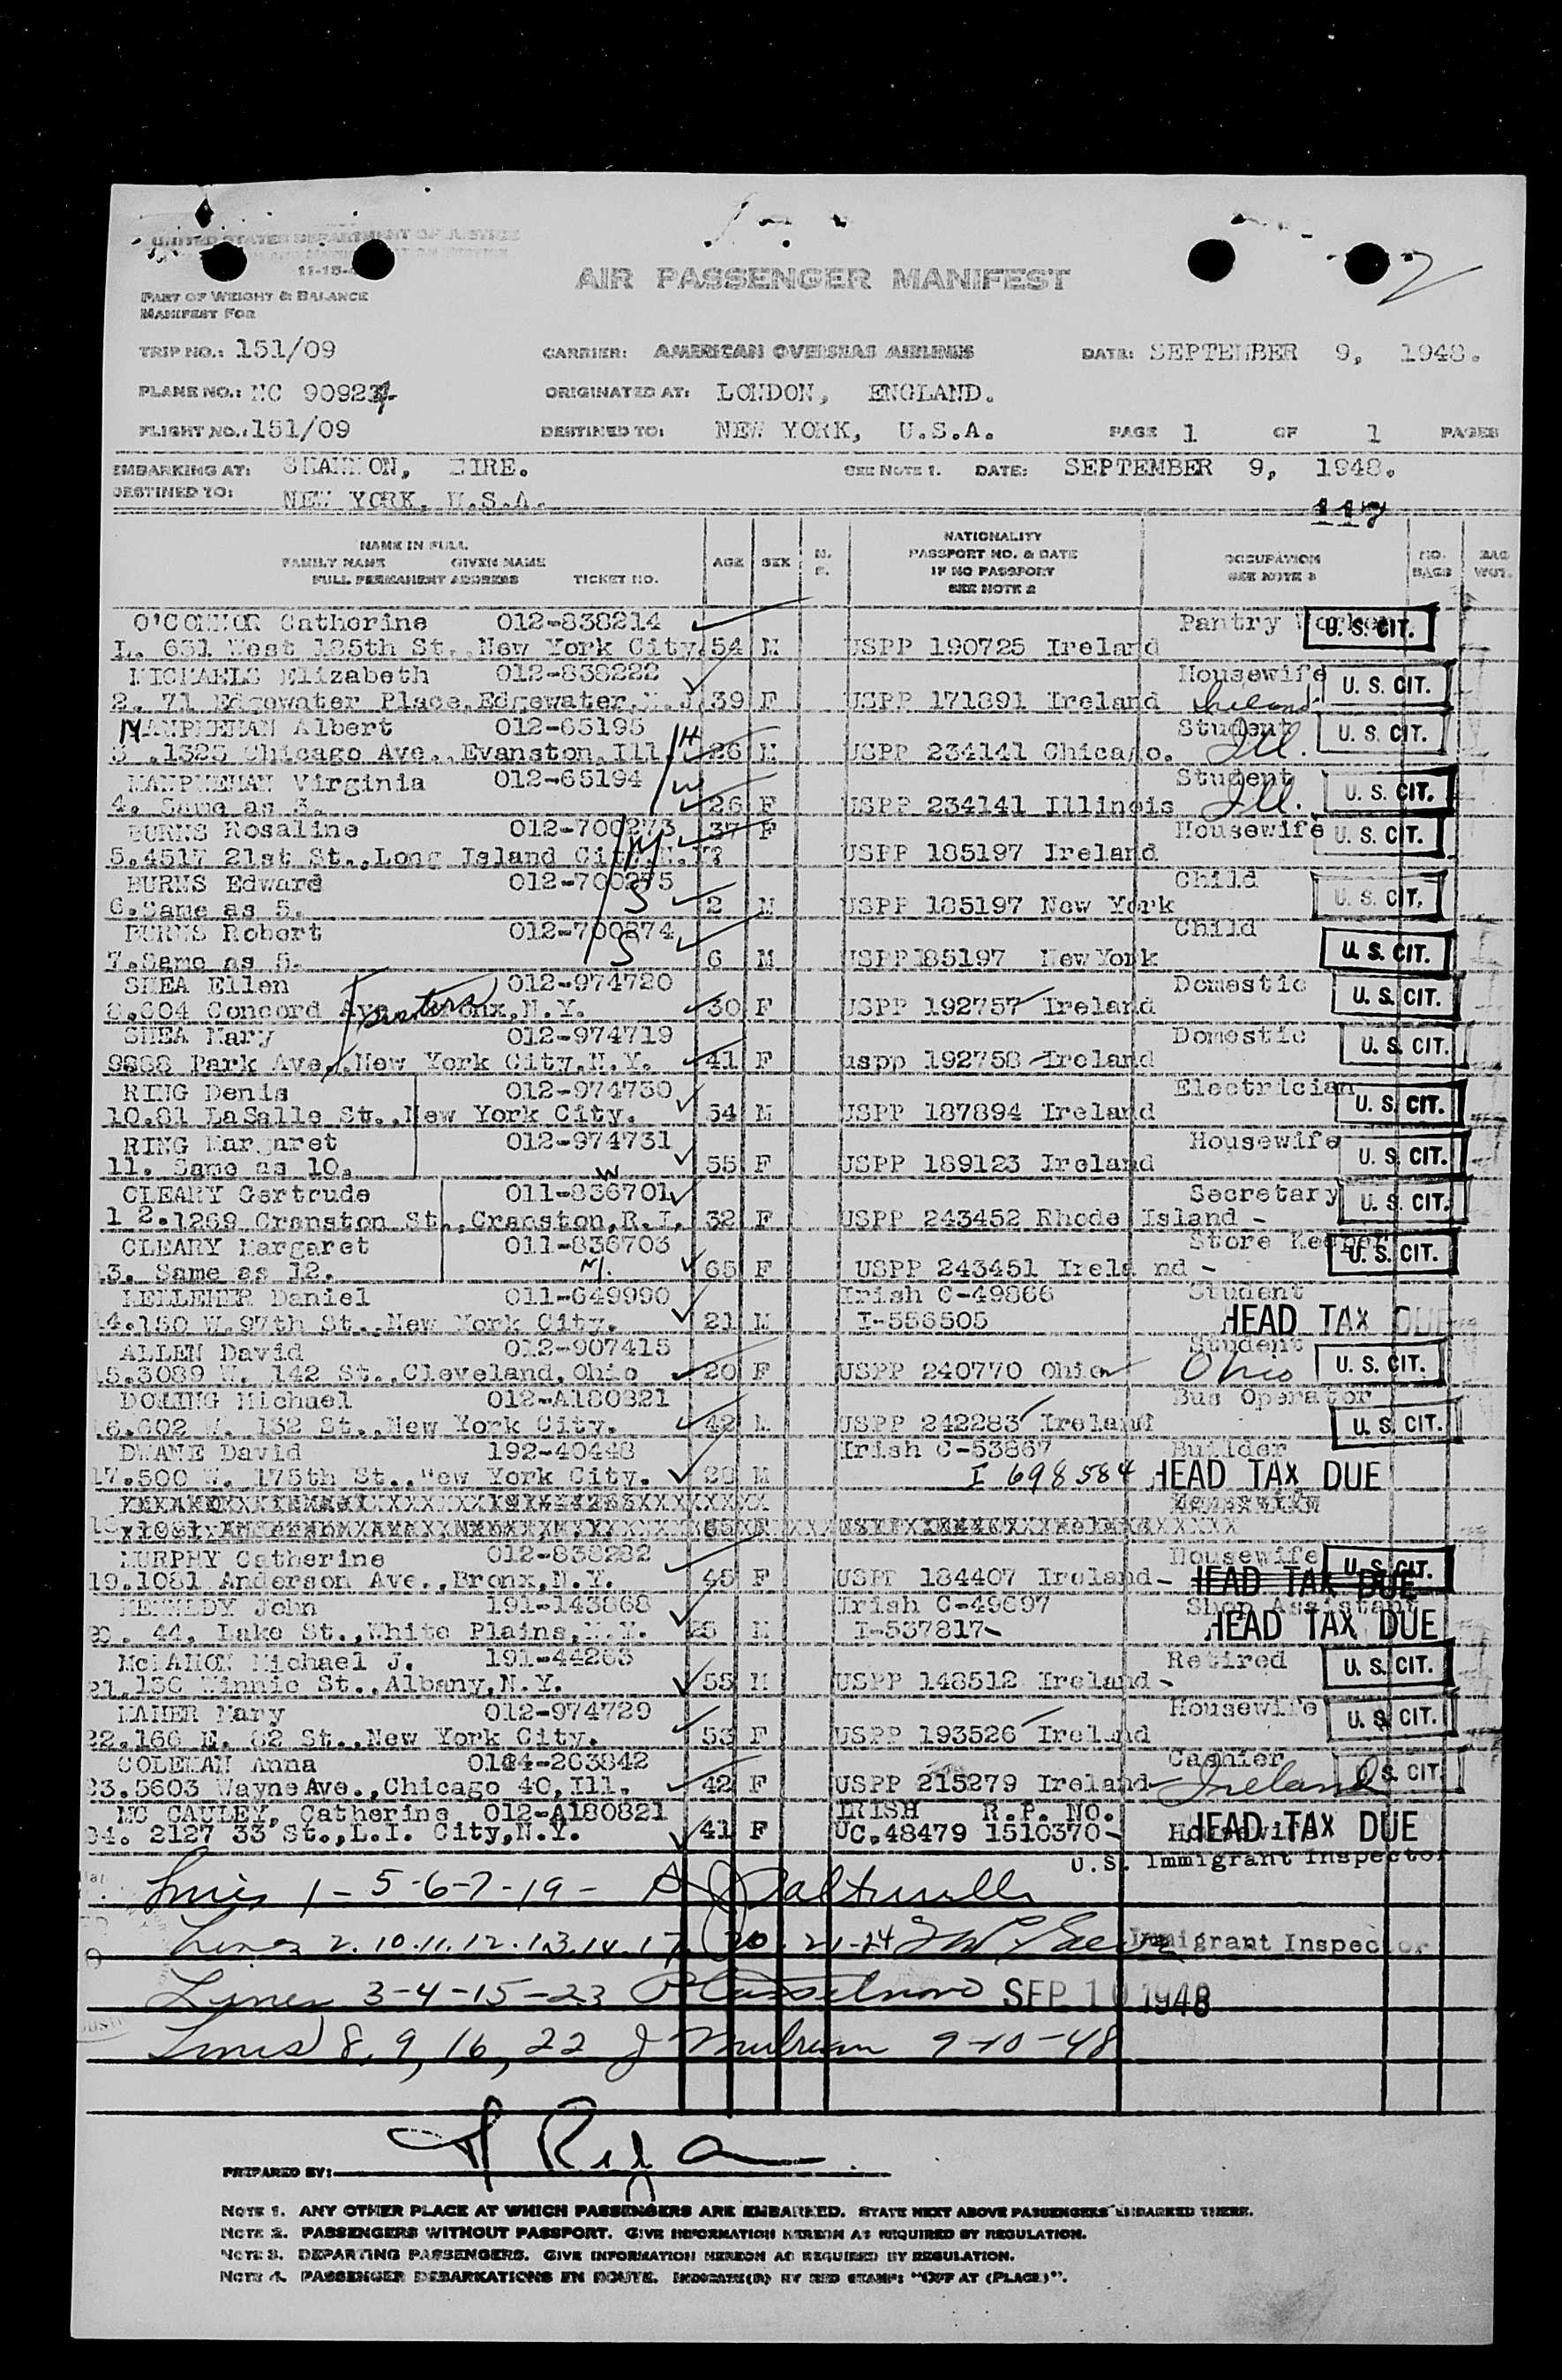 UNITED STATES DEPARTMENT OF JUSTICE
11-15-
AIR PASSENGER MANIFEST
2
PART OF WEIGHT & BALANCE
MANIFEST FOR
TRIP NO.: 151/09 CARRIER: AMERICAN OVERSEAS AIRLINES DATE: SEPTEMBER 9, 1948.
PLANE NO.: NC 90924 ORIGINATED AT: LONDON, ENGLAND.
FLIGHT NO.: 151/09 DESTINED TO: NEW YORK, U.S.A. PAGE 1 OF 1 PAGES
EMBARKING AT: SHANNON, EIRE. SEE NOTE 1. DATE: SEPTEMBER 9, 1948.
DESTINED TO: NEW YORK, U.S.A.
117
NAME IN FULL NATIONALITY
FAMILY NAME GIVEN NAME AGE SEX M. F. PASSPORT NO. & DATE OCCUPATION NO. BAGS BAG WGT.
FULL PERMANENT ADDRESS TICKET NO. IF NO PASSPORT SEE NOTE 3
SEE NOTE 2
O'CONNOR Catherine 012-838214 Pantry Worker U. S. CIT.
1. 631 West 185th St., New York City. 54 M USPP 190725 Ireland
MICHAELS Elizabeth 012-838222 Housewife U. S. CIT.
2. 71 Edgewater Place, Edgewater, N.J. 39 F USPP 171891 Ireland Ireland
Albert 012-65195 Student U. S. CIT.
3 .1323 Chicago Ave., Evanston, Ill. H 26 M USPP 234141 Chicago. Ill.
Virginia 012-65194 W Student U. S. CIT.
4. Same as 3. 26 F USPP 234141 Illinois Ill.
BURNS Rosaline 012-700273 37 F Housewife U. S. CIT.
5.4517 21st St., Long Island City, N.Y. M USPP 185197 Ireland
BURNS Edward 012-700275 Child U. S. CIT.
6.Same as 5. S 2 M USPP 185197 New York
BURNS Robert 012-700274 Child U. S. CIT.
7.Same as 5. S 6 M USPP 185197 NewYork
SHEA Ellen 012-974720 Domestic U. S. CIT.
8.604 Concord Ave., Bronx, N.Y. sisters 30 F USPP 192757 Ireland
SHEA Mary 012-974719 Domestic U. S. CIT.
9888 Park Ave., New York City, N.Y. 41 F uspp 192758 Ireland
RING Denis 012-974730 Electrician U. S. CIT.
10.81 LaSalle St., New York City. 54 M USPP 187894 Ireland
RING Margaret 012-974731 Housewife U. S. CIT.
11. Same as 10. W 55 F USPP 189123 Ireland
CLEARY Gertrude 011-836701 Secretary U. S. CIT.
1 2.1269 Cranston St., Cranston, R.I. 32 F USPP 243452 Rhode Island -
CLEARY Margaret 011-836703 Store Keeper U. S. CIT.
13. Same as 12. M. 65 F USPP 243451 Irela nd -
KELLEHER Daniel 011-649990 Irish C-49866 Student
14.150 W.97th St., New York City. 21 M I-556505 HEAD TAX DUE
ALLEN David 012-907415 Student U. S. CIT.
15.3089 W. 142 St., Cleveland, Ohio 20 F USPP 240770 Ohio Ohio
DOLING Michael 012-A180321 Bus Operator
16.602 W. 132 St., New York City. 42 M USPP 242283 Ireland U. S. CIT.
DWANE David 192-40448 Irish C-53867 Builder
17.500 W. 175th St., New York City. M I 698584 HEAD TAX DUE
MURPHY Catherine 012-838232 Housewife U. S. CIT.
19.1081 Anderson Ave., Bronx, N.Y. 45 F USPP 184407 Ireland- HEAD TAX DUE
KENNEDY John 191-143868 Irish C-49697 Shop Assistant
20. 44, Lake St., White Plains, N.Y. 25 M I-537817- HEAD TAX DUE
McMAHON Michael J. 191-44263 Retired U. S. CIT.
21.136 Winnie St., Albany, N.Y. 55 M USPP 148512 Ireland -
MAHER Mary 012-974729 Housewife U. S. CIT.
22.166 E. 82 St., New York City. 53 F USPP 193526 Ireland
COLEMAN Anna 0104-263842 Cashier U. S. CIT.
23.5603 Wayne Ave., Chicago 40, Ill. 42 F USPP 215279 Ireland Ireland
MC CAULEY, Catherine 012-A180821 IRISH R.P. NO. Housewife
24. 2127 33 St., L.I. City, N.Y. 41 F UC.48479 1510370- HEAD TAX DUE
U.S. Immigrant Inspector
Lines 1-5-6-7-19-
Lines 2.10.11.12.13.14.17. 20. 21-24 Immigrant Inspector
Lines 3-4-15-23 SEP 10 1948
Lines 8, 9, 16, 22 9-10-48
PREPARED BY:
NOTE 1. ANY OTHER PLACE AT WHICH PASSENGERS ARE EMBARKED. STATE NEXT ABOVE PASSENGERS EMBARKED THERE.
NOTE 2. PASSENGERS WITHOUT PASSPORT. GIVE INFORMATION HEREON AS REQUIRED BY REGULATION.
NOTE 3. DEPARTING PASSENGERS. GIVE INFORMATION HEREON AS REQUIRED BY REGULATION.
NOTE 4. PASSENGER DEBARKATIONS EN ROUTE. INDICATE(D) BY RED STAMP: "OFF AT (PLACE)".